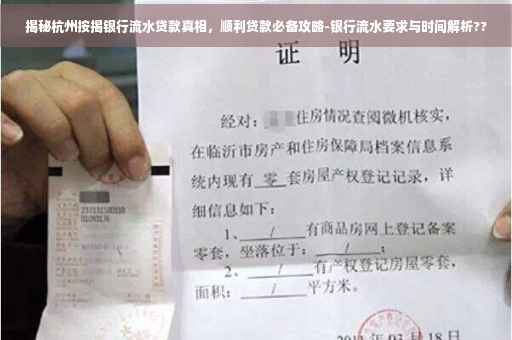 揭秘杭州按揭银行流水贷款真相，顺利贷款必备攻略-银行流水要求与时间解析??
证 明
经对: 住房情况查阅微机核实,
在临沂市房产和住房保障局档案信息系
统内现有 零 套房屋产权登记记录，详
细信息如下:
1、 / 有商品房网上登记备案
零套，坐落位于: / ;
2、 / 有产权登记房屋零套，
面积: / 平方米。
03月18日